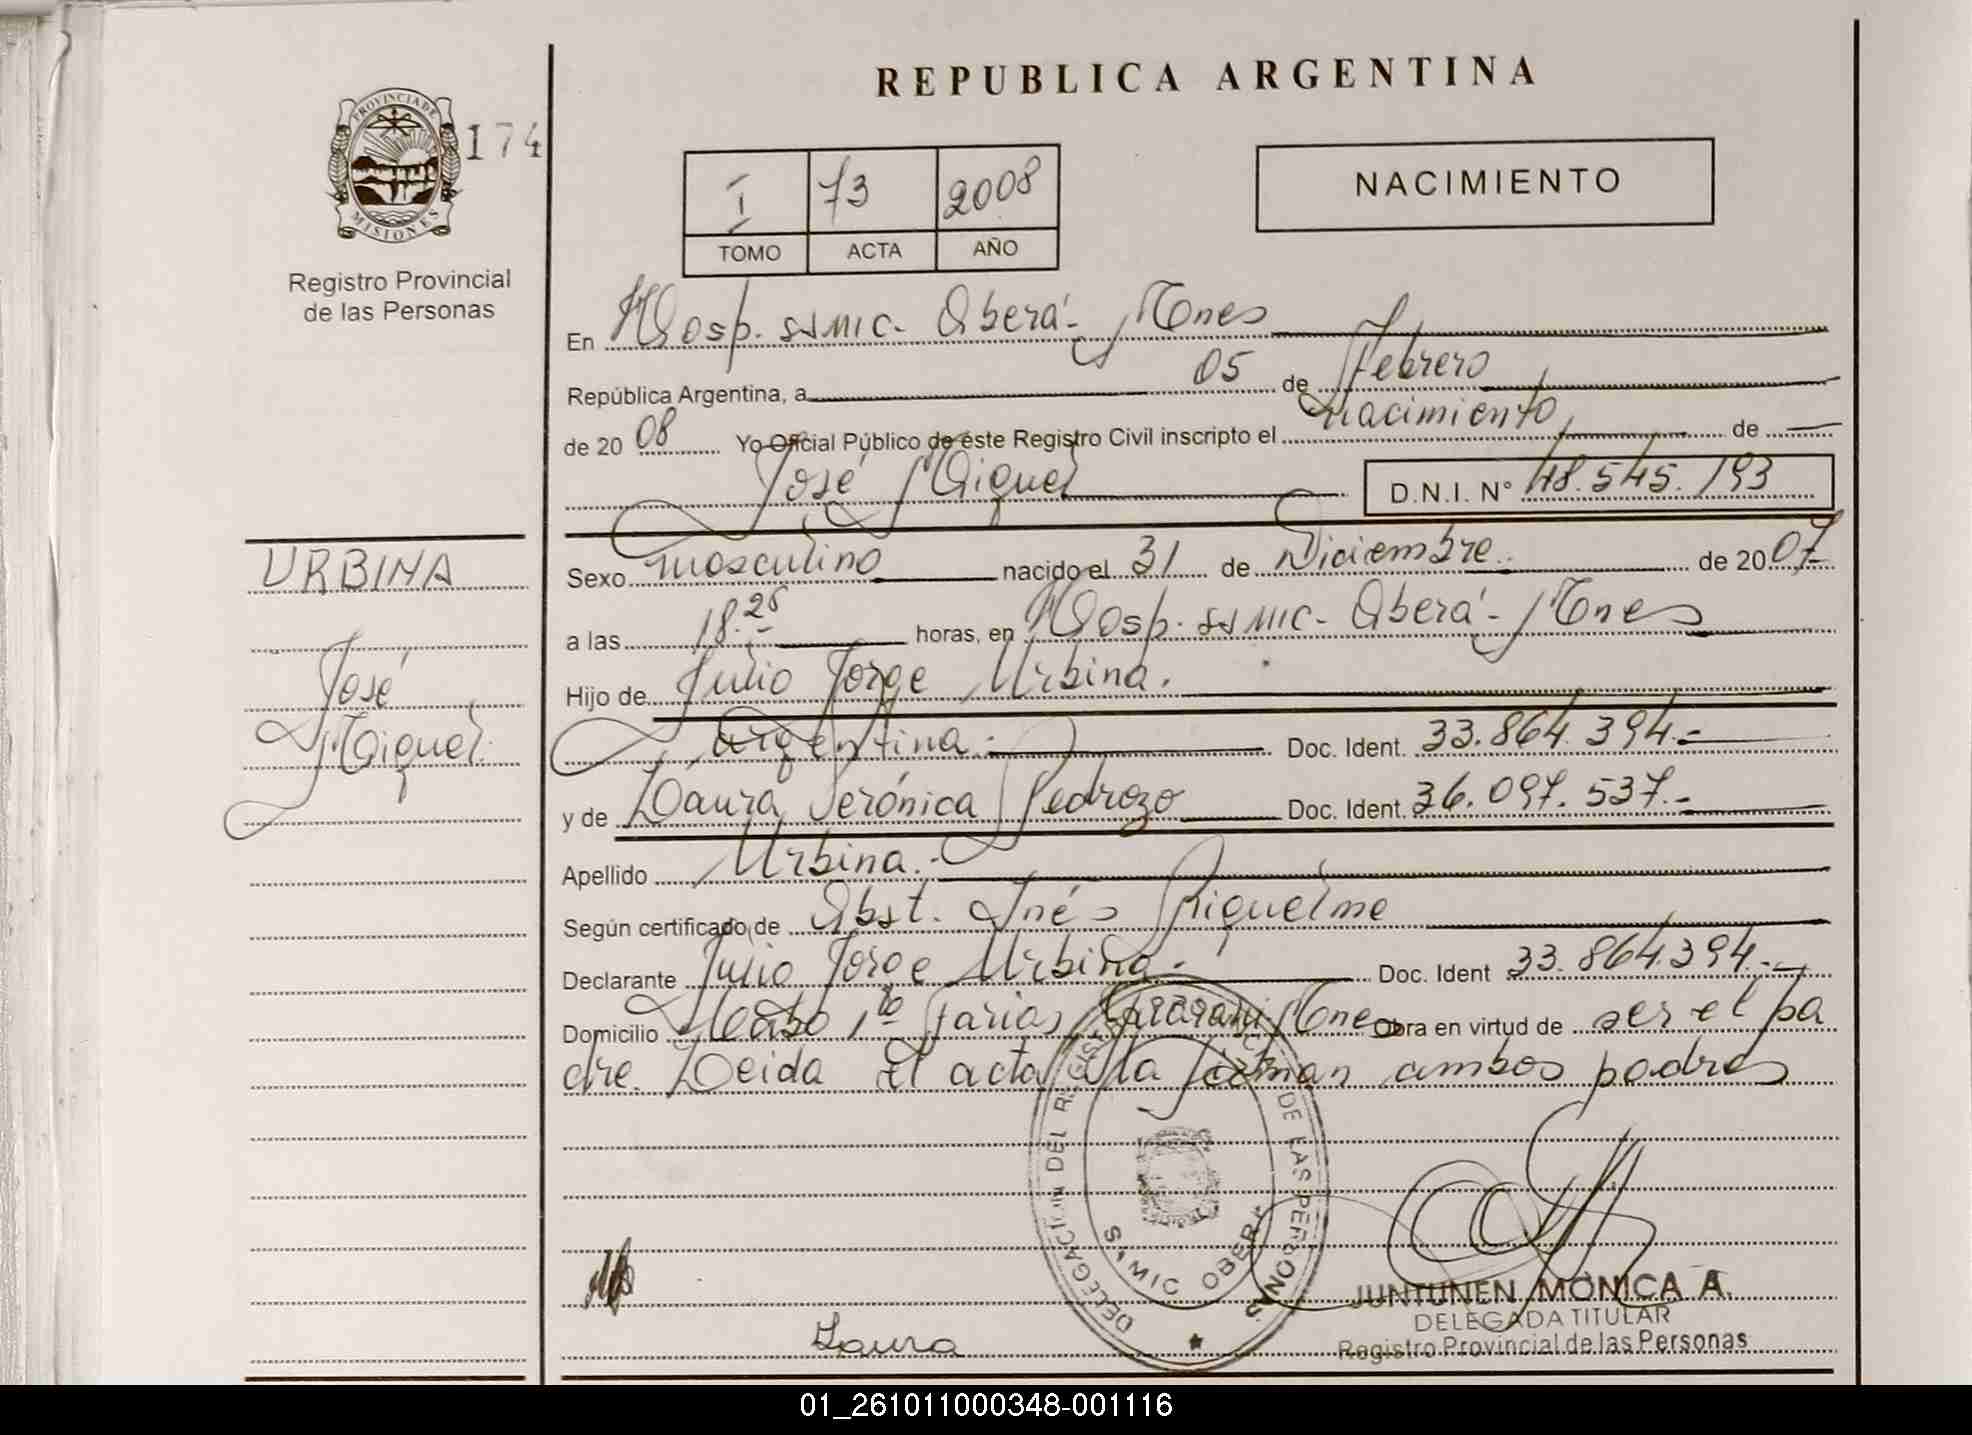 REPUBLICA ARGENTINA
PROVINCIA DE MISIONES
174
Registro Provincial
de las Personas
I 73 2008
TOMO ACTA AÑO
NACIMIENTO
En Hosp. SAMIC- Oberá- Mnes
República Argentina, a 05 de Febrero
de 20 08 Yo Oficial Público de éste Registro Civil inscripto el nacimiento, de
José Miguel D.N.I. N° 48.545.193
URBINA
José
Miguel.
Sexo masculino nacido el 31 de Diciembre. de 20 07
a las 18.25 horas, en Hosp. SAMIC- Oberá- Mnes
Hijo de Julio Jorge Urbina.
Argentina.- Doc. Ident. 33.864.394.-
y de Laura Verónica Pedrozo Doc. Ident. 36.097.537.-
Apellido Urbina.-
Según certificado de Obst. Inés Riquelme
Declarante Julio Jorge Urbina.- Doc. Ident 33.864.394.-
Domicilio 1º Farias, Guaraní Mnes Obra en virtud de ser el pa
dre. Leida El acta la firman ambos padres
DELEGACION DEL REGISTRO DE LAS PERSONAS
SAMIC OBERA
Laura
JUNTUNEN MONICA A.
DELEGADA TITULAR
Registro Provincial de las Personas
01_261011000348-001116